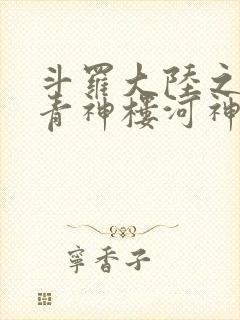 斗羅大陸之
青神樓河神
寧香子